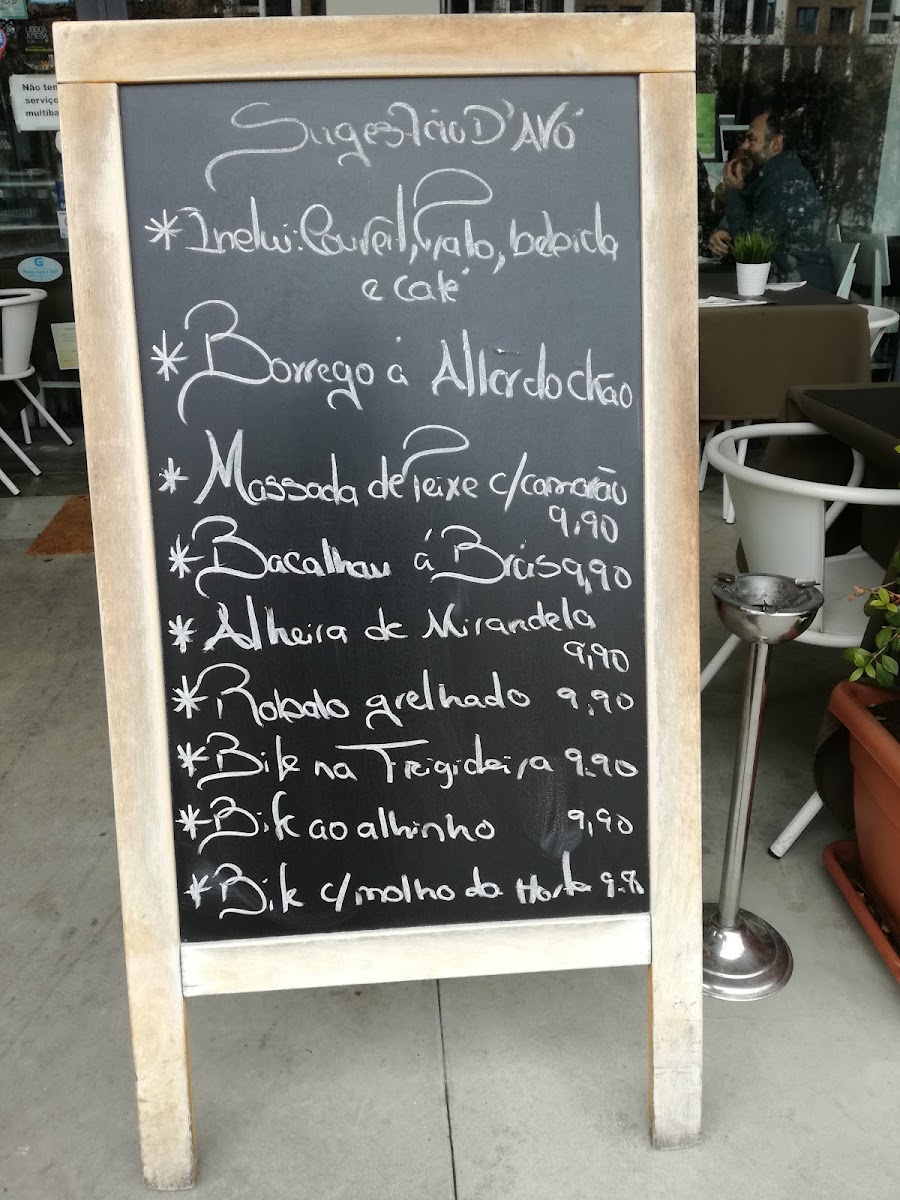 Não tem
serviço
multiba
Sugestão D'Avó
* Inclui: Couvert, prato, bebida
e café
* Borrego á Alter do chão
* Massada de Peixe c/camarão
9,90
* Bacalhau á Brás 9,90
* Alheira de Mirandela
9,90
* Robalo grelhado 9.90
* Bife na Frigideira 9.90
* Bife ao alhinho 9,90
* Bife c/molho da Horta 9.90